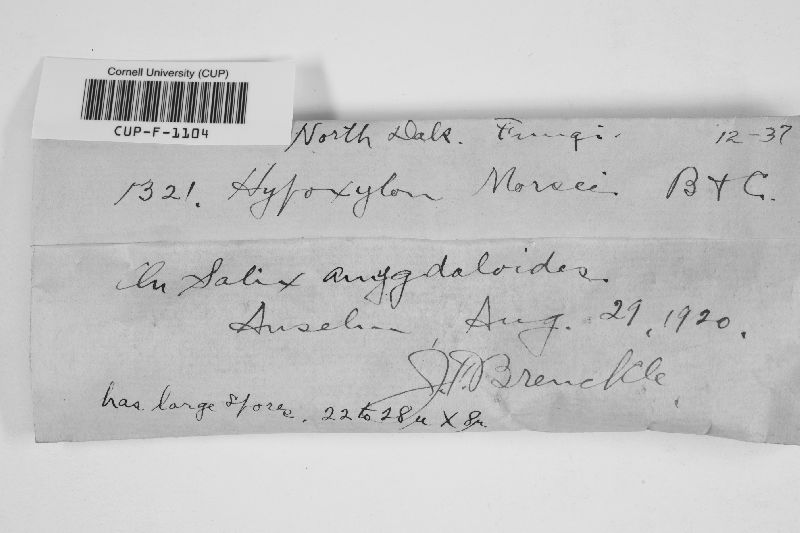 Cornell University (CUP)
CUP-F-1104
North Dak. Fungi. 12-37
1321. Hypoxylon Morsei. B & C.
On Salix amygdaloides.
Anselm, Aug. 29, 1920.
J.F. Brenckle
has large spores. 22 to 28µ X 8µ